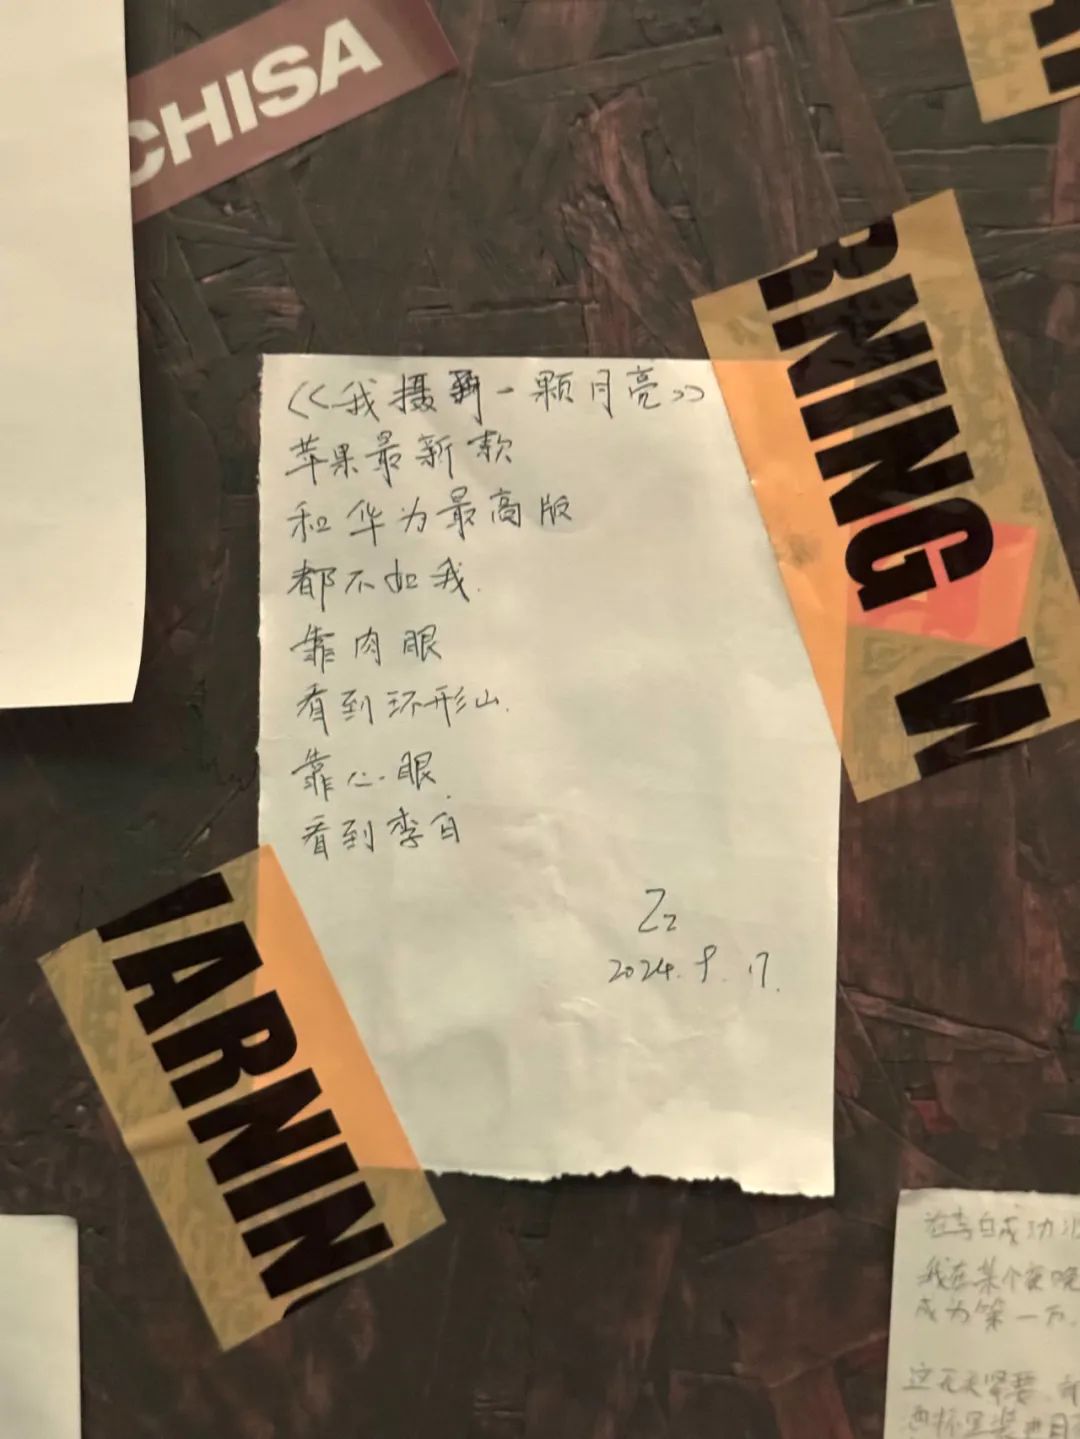 CHISA
RNING W
《我摄影一颗月亮》
苹果最新款
和华为最高版
都不如我.
靠肉眼
看到环形山.
靠心眼.
看到李白
2024.9.17.
WARNING
我在某个夜晚
成为第一万